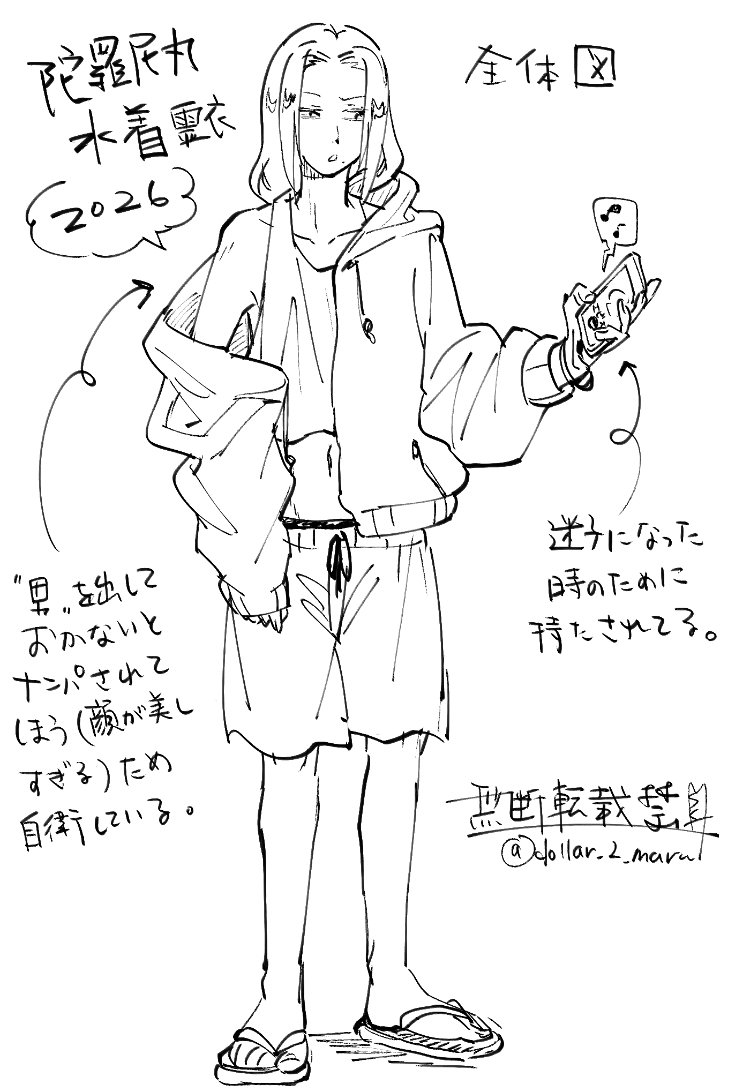 陀羅尼丸
水着霊衣
2026
全体図
"男"を出して
おかないと
ナンパされて
しまう(顔が美し
すぎる)ため
自衛している。
迷子になった
時のために
持たされてる。
無断転載禁止
@dollar_2_maru